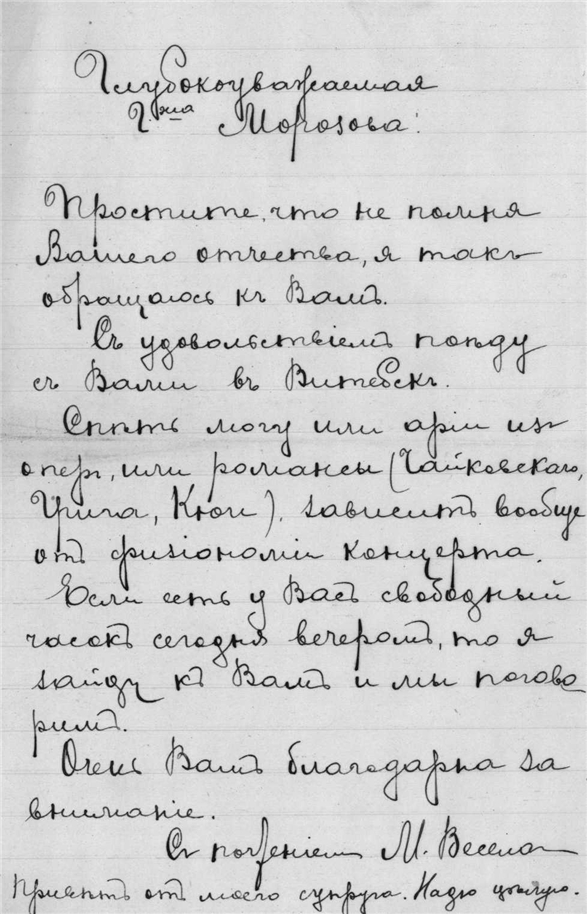 Глубокоуважаемая
Г.жа Морозова!
Простите, что не помня
Вашего отчества, я такъ
обращаюсь къ Вамъ.
Съ удовольствіемъ поѣду
съ Вами въ Витебскъ.
Спѣть могу или аріи изъ
оперъ, или романсы (Чайковскаго,
Грига, Кюи), зависитъ вообще
отъ физіономіи концерта.
Если есть у Васъ свободный
часокъ сегодня вечеромъ, то я
зайду къ Вамъ и мы погово
римъ.
Очень Вамъ благодарна за
вниманіе.
Съ почтеніемъ М.
Привѣтъ отъ моего супруга. Надю цѣлую.